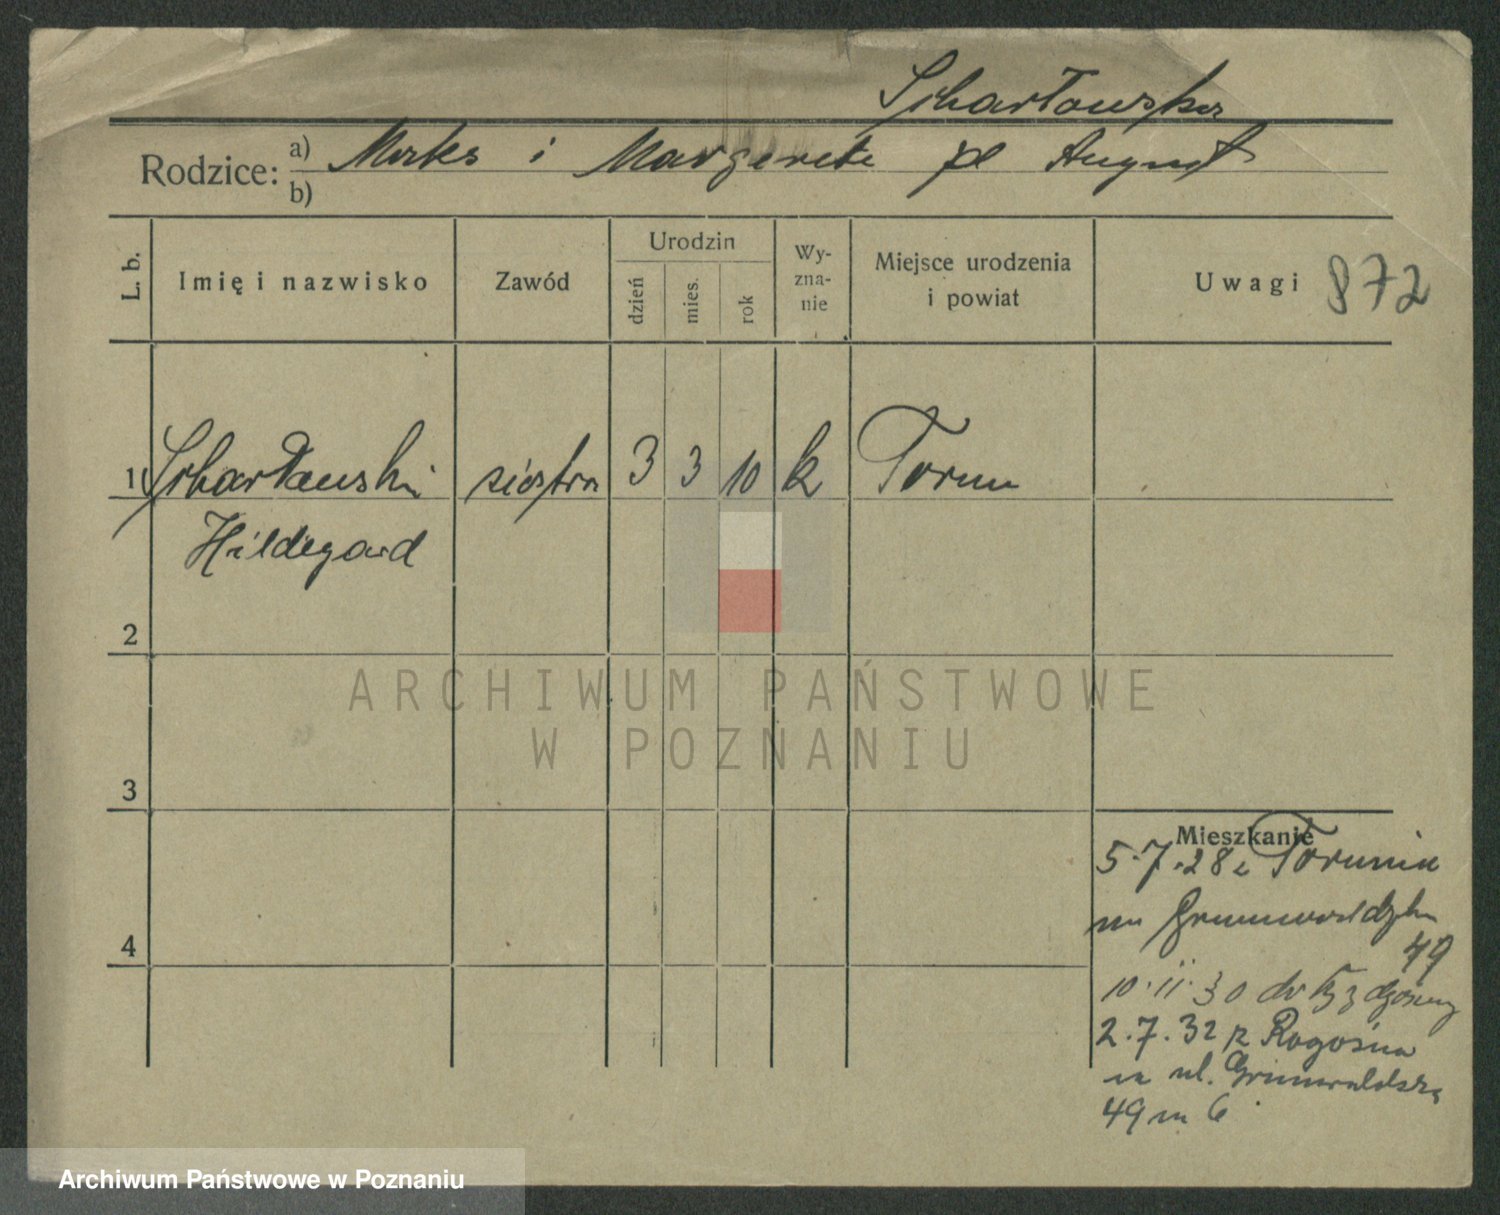 Scharłowska
Rodzice: a) Maks i Margerete pl August
b)
L. b.
Imię i nazwisko
Zawód
Urodzin
dzień
mies.
rok
Wy-
zna-
nie
Miejsce urodzenia
i powiat
Uwagi 872
1 Scharłauski siostra 3 3 10 k Torun
Hildegard
2
3
4
Mieszkanie
5.7.28 z Torunia
na Grunwaldzka
49
10.11.30 do Bydgoszcz
2.7.32 z Rogoźna
na ul. Grunwaldzką
49 m 6
ARCHIWUM PAŃSTWOWE
W POZNANIU
Archiwum Państwowe w Poznaniu